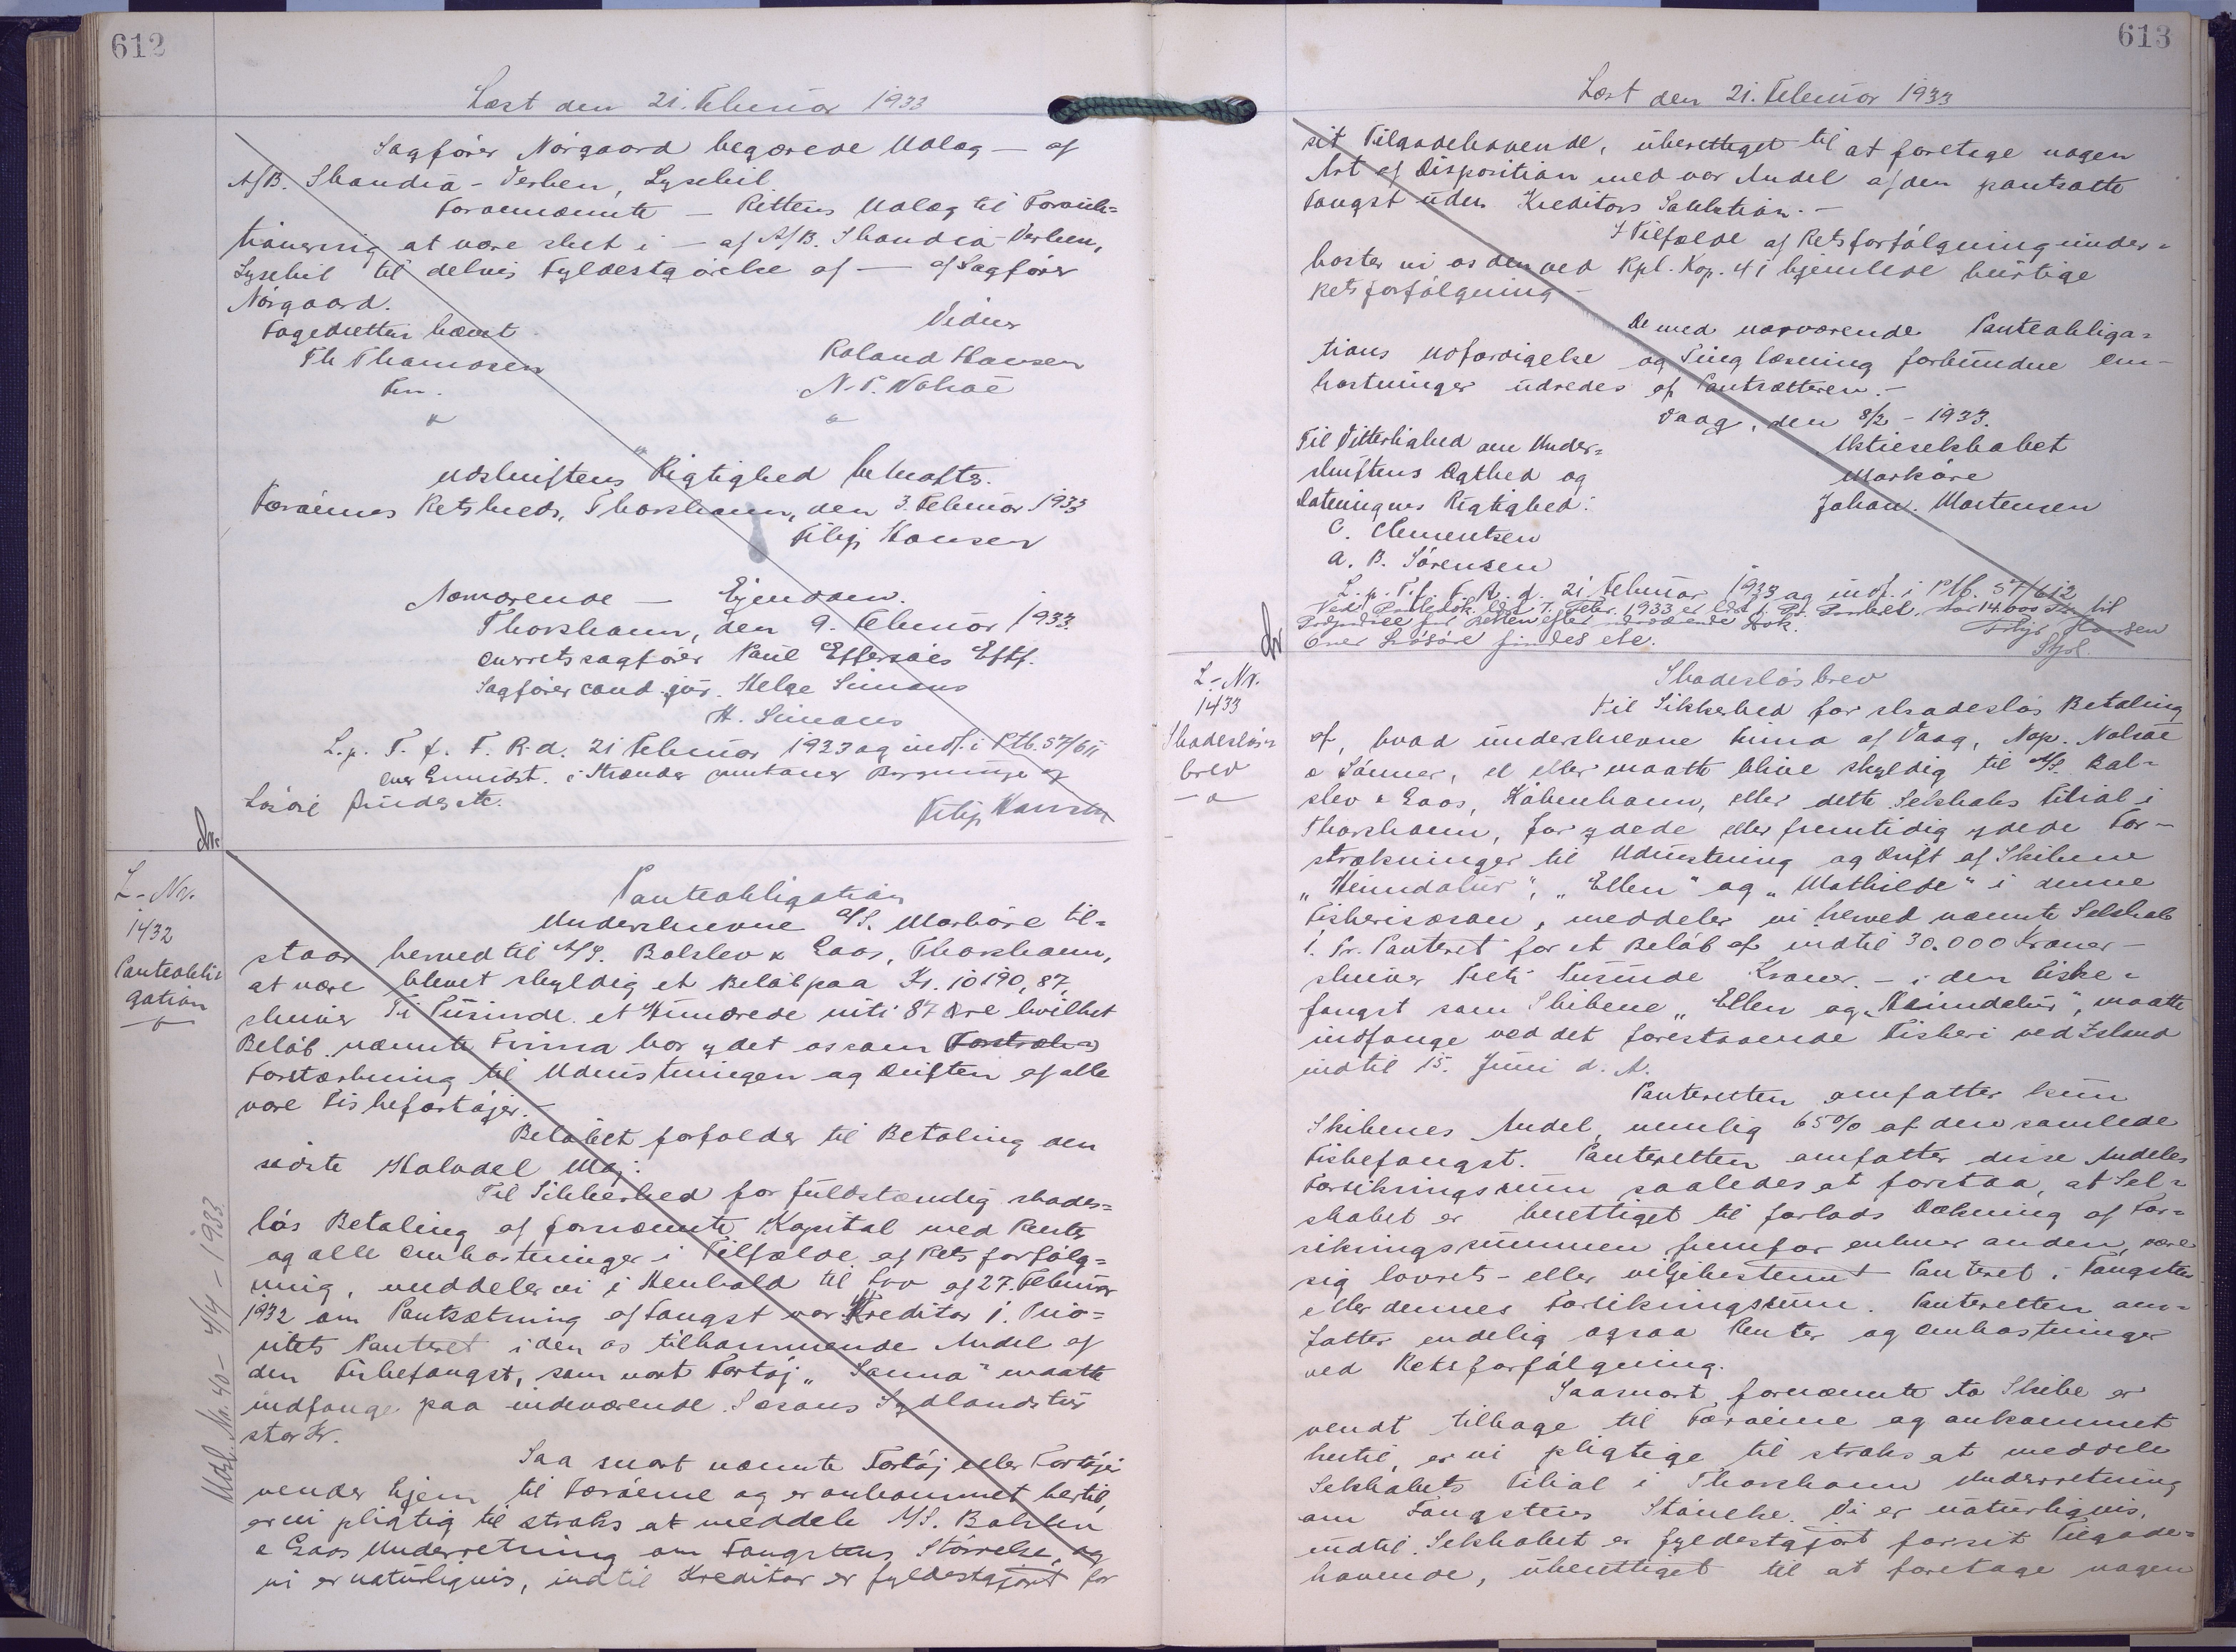 612
Læst den 21. Februar 1933
Sagfører Nørgaard begærede Udlæg — af
A/B. Skandia-Verken, Lysekil
Fornævnte — Rettens Udlæg til Forauk=
tionering at være sket i — af A/B. Skandia-Verken,
Lysekil til delvis Fyldestgørelse af — af Sagfører
Nørgaard.
Fogedretten hævet.
Vidner
Th Thomasen
Roland Hansen
Fm.
N. P. Nolsøe
Udskriftens Rigtighed bekræftes.
Færøernes Retskreds, Thorshavn, den 3. Februar 1933
Filip Hansen
Nærværende — Ejendom.
Thorshavn, den 9. Februar 1933.
Overretssagfører Paul Effersøes Eftf.
Sagfører cand. jur. Helge Simans
H. Simans
L. p. T. f. F. R. d. 21 Februar 1933 og indf. i Ptb. 57/611
Løsøre findes etc.
Filip Hansen
L-Nr.
1432
Panteobli-
gation
Panteobligation
Underskrevne A/S. Markøre til=
staar herved til A/S. Balslev & Gaos, Thorshavn,
at være blevet skyldig et Beløb paa Kr. 10190,87,
skriver Ti Tusinde et Hundrede niti 87 Øre hvilket
Beløb nævnte Firma har ydet os som Forstræk=
Forstærkning til Udrustningen og Driften af alle
vore Fiskefartøjer.-
Beløbet forfalder til Betaling den
sidste Halvdel Maj.
Til Sikkerhed for fuldstændig skades=
løs Betaling af fornævnte Kapital med Renter
og alle Omkostninger i Tilfælde af Rets forfølg=
ning, meddeler vi i Henhold til Lov af 27. Februar
1932 om Pantsætning af Fangst vor Kreditor 1. Prio=
ritets Panteret i den os tilkommende Andel af
den Fiskefangst, som vort Fartøj „Sanna" maatte
indfange paa indeværende Sæsons Sydlandstur
stor Kr.
Saa snart nævnte Fartøj eller Fartøjer
vender hjem til Færøerne og er ankommet hertil,
er vi pligtig til straks at meddele A/S. Balslev
& Gaos Underretning om Fangstens Størrelse, og
vi er naturligvis, indtil Kreditor er fyldestgjort for
Udsl. No. 40 - 4/4 - 1933.
613
Læst den 21. Februar 1933
sit Tilgodehavende, uberettiget til at foretage nogen
Art af Disposition med vor Andel af den pantsatte
Fangst uden Kreditors Sanktion.-
I Tilfælde af Retsforfølgning under=
kaster vi os den ved Rpl. Kap. 41 hjemlede hurtige
Retsforfølgning-
De med nærværende Panteobliga=
tions Udfærdigelse og Tinglæsning forbundne Om-
kostninger udredes af Pantsætteren.-
Vaag, den 8/2 - 1933.
Til Vitterlighed om Under=
skriftens Ægthed og
Dateringens Rigtighed:
Aktieselskabet
Markøre
Johan. Mortensen
C. Clementsen
A. B. Sørensen
L. p. T. f. F. R. d. 21 Februar 1933 og indf. i Ptb. 57/612
over Løsøre findes etc.
Filip Hansen
L-Nr.
1433
Skadesløs=
brev
Skadesløsbrev
Til Sikkerhed for skadesløs Betaling
af, hvad underskrevne Firma af Vaag, Nap. Nolsøe
& Sønner, er eller maatte blive skyldig til A/S. Bal=
slev & Gaos, København, eller dette Selskabs Filial i
Thorshavn, for ydede eller fremtidig ydede For-
strækninger til Udrustning og Drift af Skibene
„Heimdalur", „Ellen" og „Mathilde" i denne
Fiskerisæson, meddeler vi herved nævnte Selskab
1. Pr. Panteret for et Beløb af indtil 30.000 Kroner-
skriver Treti Tusinde Kroner.- i den Fiske=
fangst som Skibene „Ellen og „Heimdalur", maatte
indfange ved det forestaaende Fiskeri ved Island
indtil 15. Juni d. A.
Panteretten omfatter kun
Skibenes Andel, nemlig 65% af den samlede
Fiskefangst. Panteretten omfatter disse Andeles
Forsikringssum saaledes at forstaa, at Sel=
skabet er berettiget til forlods Dækning af For=
sikringssummen fremfor enhver anden, være
sig lovrets- eller viljebestemt Panteret i Fangsten
eller dennes Forsikringssum. Panteretten om=
fatter endelig ogsaa Renter og Omkostninger
ved Retsforfølgning.
Saasnart fornævnte to Skibe er
vendt tilbage til Færøerne og ankommet
hertil, er vi pligtige til straks at meddele
Selskabets Filial i Thorshavn Underretning
om Fangstens Størrelse. Vi er naturligvis,
indtil Selskabet er fyldestgjort for sit Tilgode=
havende, uberettiget til at foretage nogen